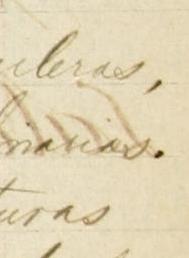 uleras,
inarias.
turas